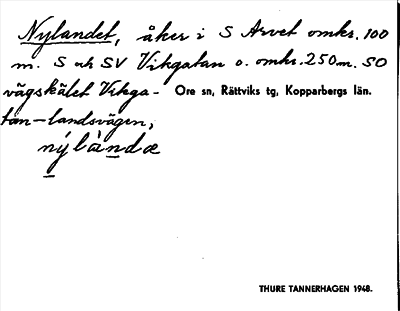 Nylandet, åker i S Arvet omkr. 100
m. S och SV Vikgatan o. omkr. 250 m. SO
vägskälet Vikga- Ore sn, Rättviks tg, Kopparbergs län.
tan-landsvägen,
nýlàndæ
THURE TANNERHAGEN 1948.